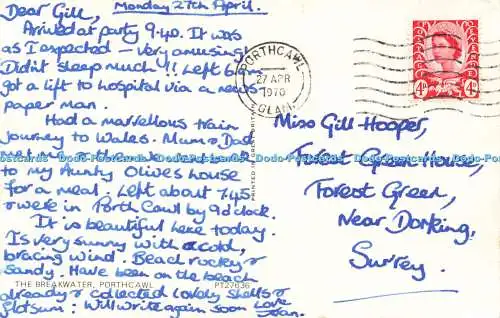 Monday 27th April.
Dear Gill,
Arrived at party 9.40. It was
as I expected - very amusing.
Didn't sleep much!! Left
got a lift to hospital via a news
paper man.
Had a marvellous train
journey to Wales. Mum & Dad
met me
to my Aunty Olives house
for a meal. Left about 7.45
& were in Porth Cawl by 9 o'clock.
It is beautiful here today.
Is very sunny with a cold,
bracing wind. Beach rocky &
sandy. Have been on the beach
already & collected lovely shells &
flotsum. Will write again soon Love
Joan.
THE BREAKWATER, PORTHCAWL
PT27636
PORTHCAWL
27 APR
1970
GLAM
4D
4D
Miss Gill Hooper,
Forest Green House,
Forest Green,
Near Dorking,
Surrey.
Dodo-Postcards Dodo-Postcards Dodo-Postcards